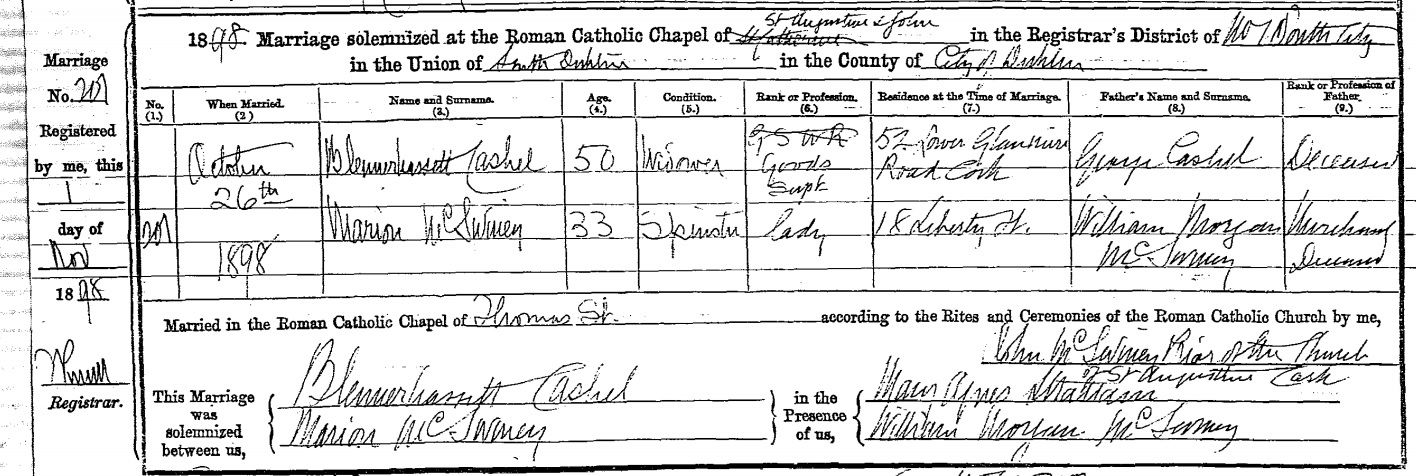 St Augustine & John
1898. Marriage solemnized at the Roman Catholic Chapel of St Catherine in the Registrar's District of No 1 South City
in the Union of South Dublin in the County of City of Dublin
Marriage
No. 201
Registered
by me, this
1
day of
Nov
1898
Registrar.
No. (1.) When Married. (2) Name and Surname. (3.) Age. (4.) Condition. (5.) Rank or Profession. (6.) Residence at the Time of Marriage. (7.) Father's Name and Surname. (8.) Rank or Profession of Father. (9.)
201
October
26th
1898
Blennerhassett Cashel 50 Widower G S W R Goods Supt 52 Lower Glanmire Road Cork George Cashel Deceased
Marion McSwiney 33 Spinster Lady 18 Liberty St. William Morgan McSwiney Merchant Deceased
Married in the Roman Catholic Chapel of Thomas St. according to the Rites and Ceremonies of the Roman Catholic Church by me,
John McSwiney Prior of the Church
of St Augustine Cork
This Marriage was solemnized between us,
Blennerhassett Cashel
Marion McSwiney
in the Presence of us,
Agnes
William Morgan McSwiney